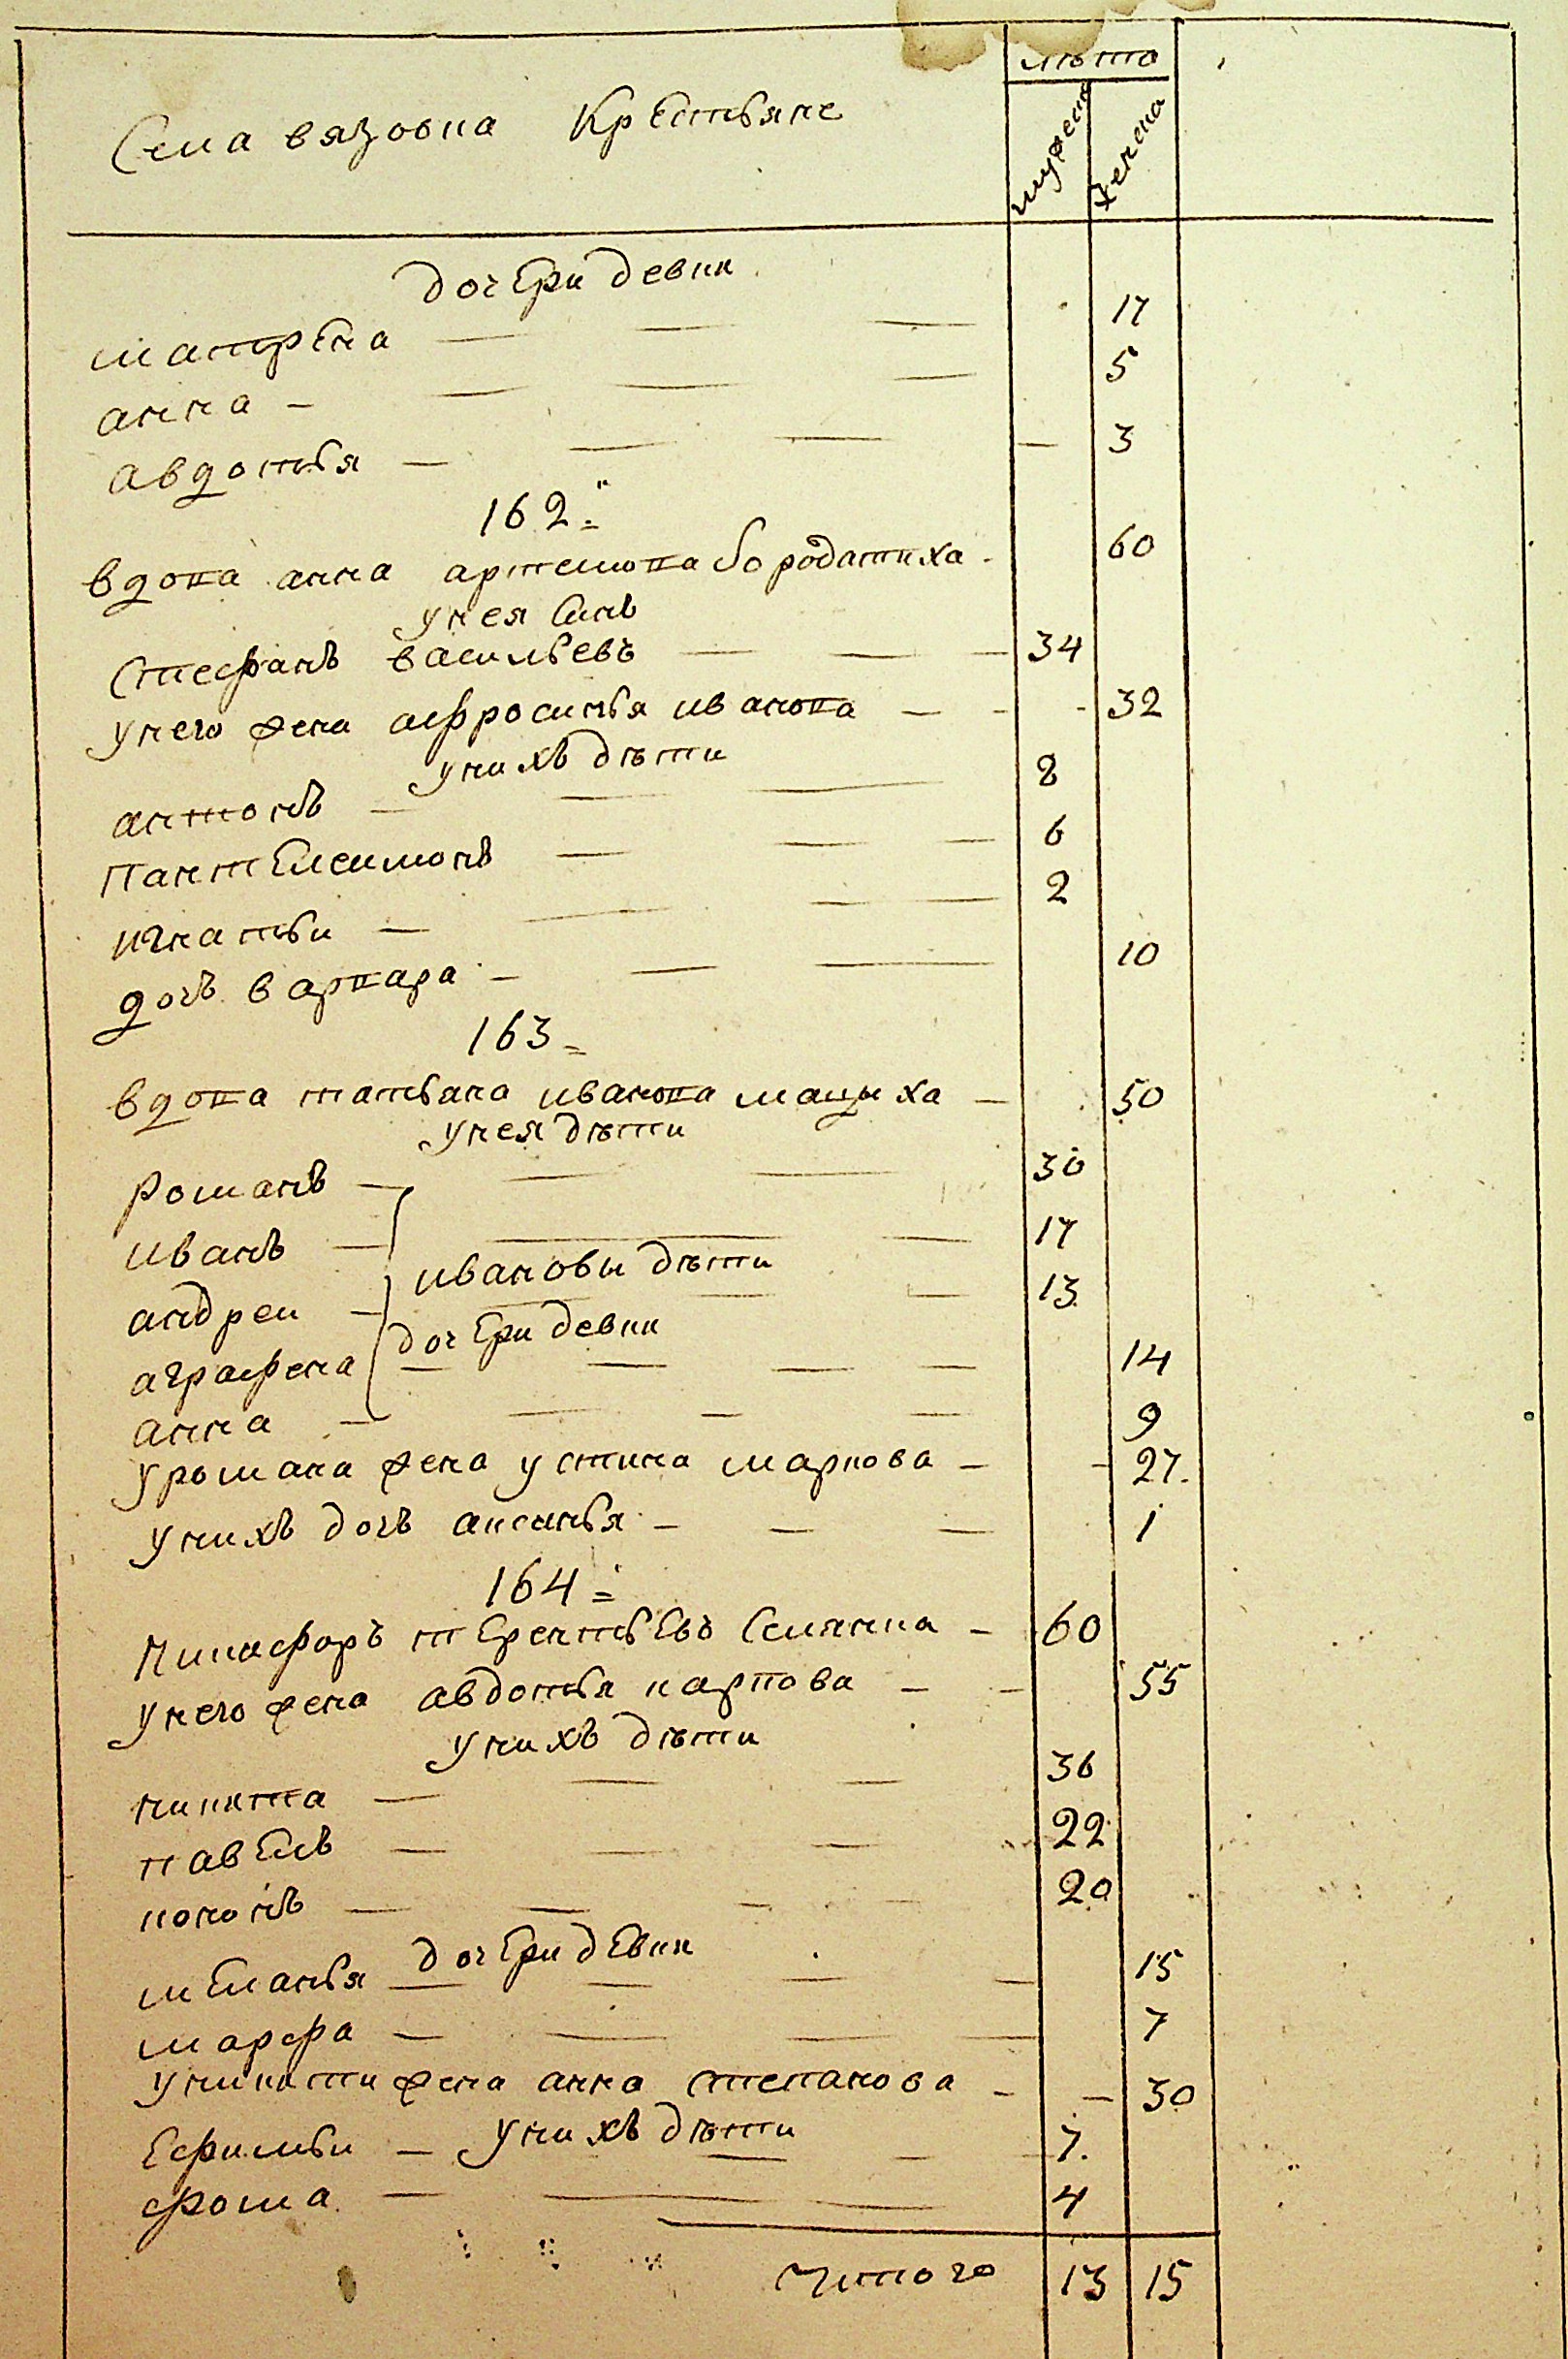 лѣта
Села вязовка Крестьяне
мужеска
женска
дочери девки
матрена — — — 17
анна — — — — 5
авдотья — — — — 3
162
вдова анна артемова бородатиха - 60
у нея Синъ
Стефанъ васильевъ — — — 34
у него жена афросинья иванова — - - 32
у нихъ дѣти
антонъ — — — 8
пантелеимонъ — — — 6
игнатьи — — — — 2
дочъ варвара — — — 10
163
вдова татьяна иванова мацыха — 50
у нея дѣти
романъ — — — 30
иванъ — — — 17
ивановы дѣти
андреи — — — — 13
дочери девки
аграфена — — — — 14
анна — — — — 9
у романа жена устина маркова — - 27.
у нихъ дочъ аксинья — — — 1
164
Никифоръ терентьевъ Селянка — 60
у него жена авдотья карпова — — 55
у нихъ дѣти
никита — — — 36
павелъ — — — 22
кононъ — — — — 20
дочери девки
меланья — — — — 15
марфа — — — — 7
у никити жена анна степанова - — 30
у нихъ дѣти
Ефимьи — — — 7.
фома — — — 4
итого 13 15